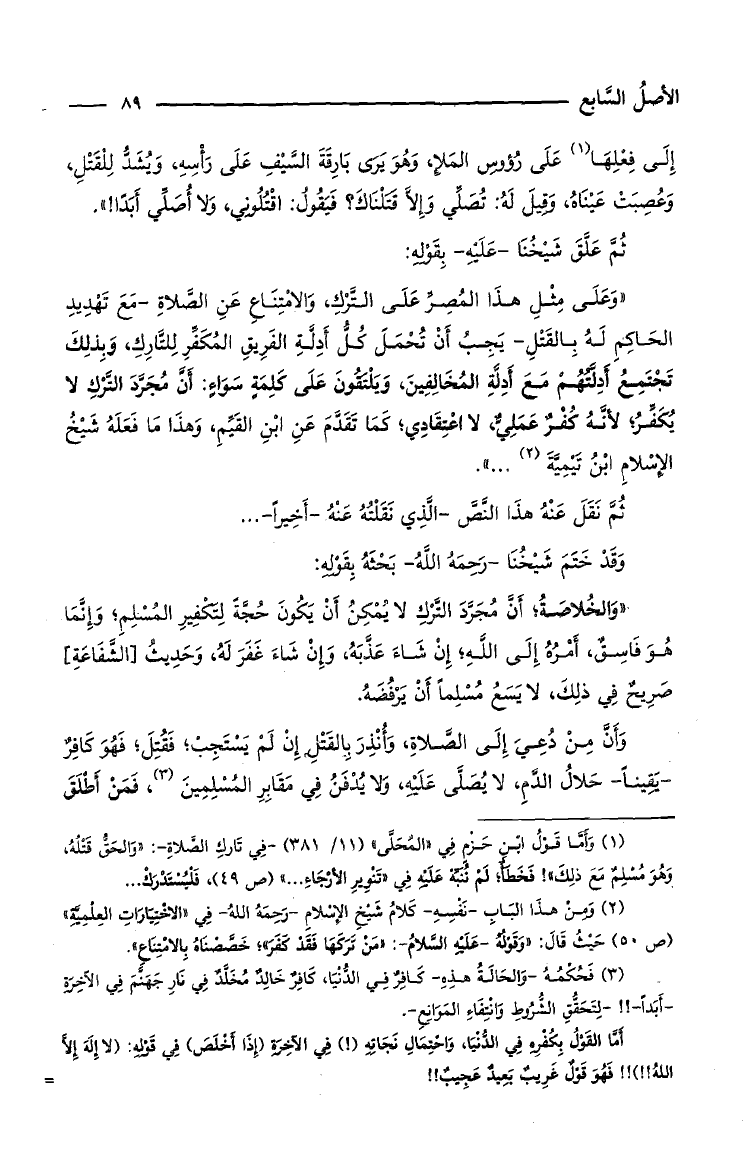 الأصلُ السَّابع ——— ٨٩ ——
إِلَى فِعْلِهَا(١) عَلَى رُؤُوسِ المَلإِ، وَهُوَ يَرَى بَارِقَةَ السَّيْفِ عَلَى رَأْسِهِ، وَيُشَدُّ لِلْقَتْلِ،
وَعُصِبَتْ عَيْنَاهُ، وَقِيلَ لَهُ: تُصَلِّي وَإِلاَّ قَتَلْنَاكَ؟ فَيَقُولُ: اقْتُلُونِي، وَلا أُصَلِّي أَبَدًا!».
ثُمَّ عَلَّقَ شَيْخُنَا -عَلَيْهِ- بِقَوْلِهِ:
«وَعَلَى مِثْلِ هـذَا المُصِرِّ عَلَى التَّرْكِ، وَالامْتِنَاعِ عَنِ الصَّلاةِ -مَعَ تَهْدِيدِ
الحَاكِمِ لَهُ بِالقَتْلِ- يَجِبُ أَنْ تُحْمَلَ كُلُّ أَدِلَّةِ الفَرِيقِ المُكَفِّرِ لِلتَّارِكِ، وَبِذلِكَ
تَجْتَمِعُ أَدِلَّتُهُمْ مَعَ أَدِلَّةِ المُخَالِفِينَ، وَيَلْتَقُونَ عَلَى كَلِمَةٍ سَوَاءٍ: أَنَّ مُجَرَّدَ التَّرْكِ لا
يُكَفِّرُ؛ لأَنَّهُ كُفْرٌ عَمَلِيٌّ، لا اعْتِقَادِي؛ كَمَا تَقَدَّمَ عَنِ ابْنِ القَيِّمِ، وَهذَا مَا فَعَلَهُ شَيْخُ
الإِسْلامِ ابْنُ تَيْمِيَّةَ (٢) ...».
ثُمَّ نَقَلَ عَنْهُ هذَا النَّصَّ -الَّذِي نَقَلْتُهُ عَنْهُ -أَخِيراً-...
وَقَدْ خَتَمَ شَيْخُنَا -رَحِمَهُ اللَّهُ- بَحْثَهُ بِقَوْلِهِ:
«وَالخُلاصَةُ؛ أَنَّ مُجَرَّدَ التَّرْكِ لا يُمْكِنُ أَنْ يَكُونَ حُجَّةً لِتَكْفِيرِ المُسْلِمِ؛ وَإِنَّمَا
هُوَ فَاسِقٌ، أَمْرُهُ إِلَى اللَّهِ؛ إِنْ شَاءَ عَذَّبَهُ، وَإِنْ شَاءَ غَفَرَ لَهُ، وَحَدِيثُ [الشَّفَاعَةِ]
صَرِيحٌ فِي ذلِكَ، لا يَسَعُ مُسْلِماً أَنْ يَرْفُضَهُ.
وَأَنَّ مِنْ دُعِيَ إِلَى الصَّلاةِ، وَأُنْذِرَ بِالقَتْلِ إِنْ لَمْ يَسْتَجِبْ؛ فَقُتِلَ؛ فَهُوَ كَافِرٌ
-يَقِيناً- حَلالُ الدَّمِ، لا يُصَلَّى عَلَيْهِ، وَلا يُدْفَنُ فِي مَقَابِرِ المُسْلِمِينَ (٣)، فَمَنْ أَطْلَقَ
(١) وَأَمَّا قَوْلُ ابْنِ حَزْمٍ فِي «المُحَلَّى» (١١/ ٣٨١) -فِي تَارِكِ الصَّلاةِ-: «وَالحَقُّ قَتْلُهُ،
وَهُوَ مُسْلِمٌ مَعَ ذلِكَ»! فَخَطَأٌ؛ لَمْ نُنَبِّهْ عَلَيْهِ فِي «تَنْوِيرِ الأَرْجَاءِ...» (ص ٤٩)، فَلْيُسْتَدْرَكْ...
(٢) وَمِنْ هـذَا البَابِ -نَفْسِهِ- كَلامُ شَيْخِ الإِسْلامِ -رَحِمَهُ اللهُ- فِي «الاخْتِيَارَاتِ العِلْمِيَّةِ»
(ص ٥٠) حَيْثُ قَالَ: «وَقَوْلُهُ -عَلَيْهِ السَّلامُ-: «مَنْ تَرَكَهَا فَقَدْ كَفَرَ»؛ خَصَّصْنَاهُ بِالامْتِنَاعِ».
(٣) فَحُكْمُهُ -وَالحَالَةُ هـذِهِ- كَافِرٌ فِي الدُّنْيَا، كَافِرٌ خَالِدٌ مُخَلَّدٌ فِي نَارِ جَهَنَّمَ فِي الآخِرَةِ
-أَبَداً-!! -لِتَحَقُّقِ الشُّرُوطِ وَانْتِفَاءِ المَوَانِعِ-.
أَمَّا القَوْلُ بِكُفْرِهِ فِي الدُّنْيَا، وَاحْتِمَالِ نَجَاتِهِ (!) فِي الآخِرَةِ (إِذَا أَخْلَصَ) فِي قَوْلِهِ: (لا إِلَهَ إِلاَّ
اللهُ!!)!! فَهُوَ قَوْلٌ غَرِيبٌ بَعِيدٌ عَجِيبٌ!! =